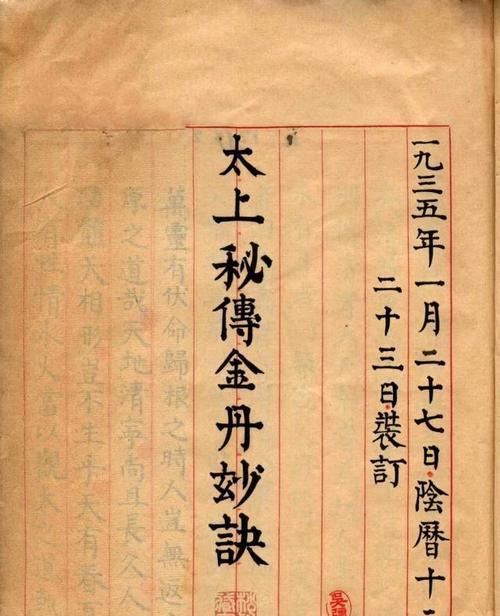 一九三五年一月二十七日陰曆十二
二十三日裝訂
太上秘傳金丹妙訣
萬靈有伏命歸根之時人豈無返
之道哉天地者尚且長久人
體天相形豈不生乎天有春